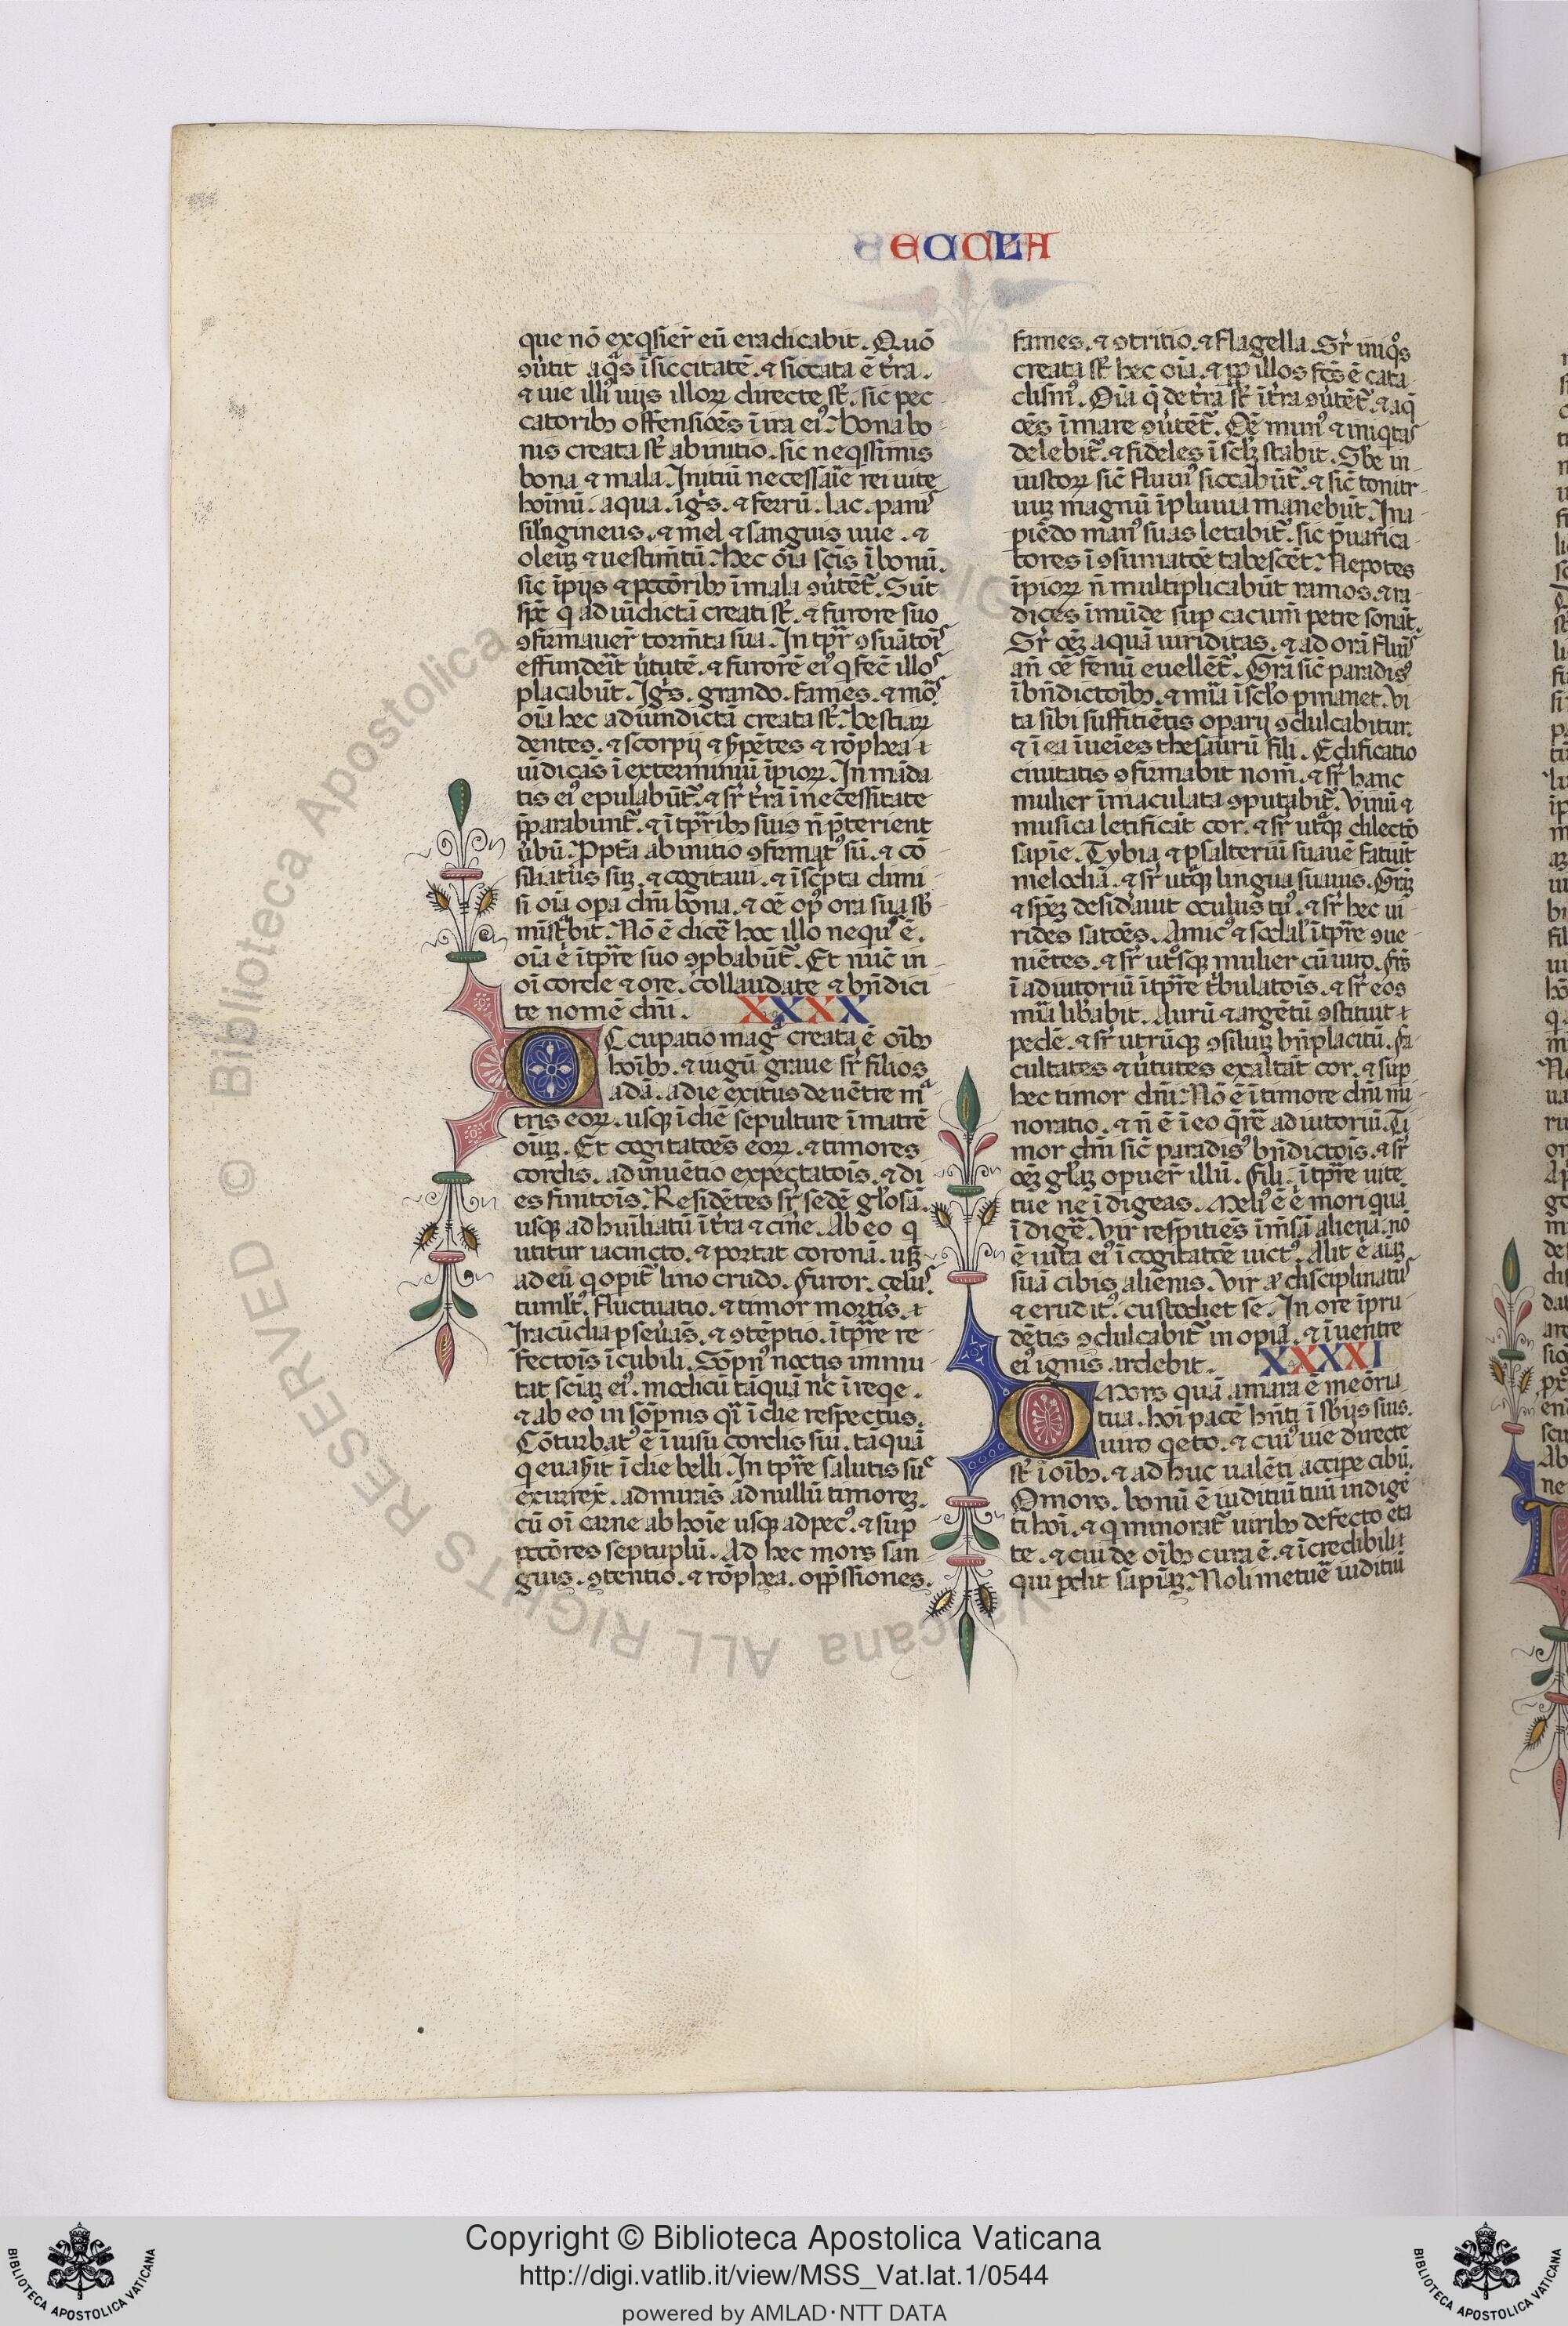 ECCLA
que nō exq̄sier̄ eū eradicabit. Quō
ꝯũtit aq̄s ī siccitatē. ⁊ siccata ē t̄ra.
⁊ uie illi uijs illoꝝ directe st̄. sic pec
catoribꝫ offensiōēs ī ira eiꝰ. Bona bo
nis creata st̄ ab initio. sic neq̄ssimis
bona ⁊ mala. Initiū necessāie rei uite
hoīnū. aqua. īgis. ⁊ ferrū. lac. panis
silagineus. ⁊ mel ⁊ sanguis uue. ⁊
oleuꝫ ⁊ uestim̄tū. hec oīa sc̄is ī bonū.
sic īpijs ⁊ pctōribꝫ ī mala ꝯũtēt̄. Sūt
sp̄c q̄ ad uīdictā creati st̄. ⁊ furore suo
ꝯfirmauer̄ torm̄ta sua. In tp̄r̄ ꝯsuātōīs
effundēt ũtutē. ⁊ furorē eiꝰ q̄ fec̄ illos
placabūt. Igis. grando. fames. ⁊ mōs
oīa hec ad uīndictā creata st̄. bestiaꝝ
dentes. ⁊ scorpij ⁊ s̄pētes ⁊ rōphea ⁊
uīdicās ī exterminiū īpioꝝ. In māda
tis eiꝰ epulabūt̄. ⁊ sr̄ t̄rā ī necessitate
p̄parabunt̄. ⁊ ī tp̄ribꝫ suis n̄ p̄terient
ũbū. Ppt̄a ab initio ꝯfirmatꝰ sū. ⁊ cō
siliatus suꝫ. ⁊ cogitaui. ⁊ ī sc̄pta dimi
si oīa opa dn̄i bona. ⁊ oē opꝰ ora sua sb̄
mīst̄bit. Nō ē dicē hoc illo nequiꝰ ē.
oīa ē ī tp̄re suo ꝯp̄babūt̄. Et nūc in
oī corde ⁊ ore. collaudate ⁊ bn̄dici
te nomē dn̄i. XXXX
Occupatio mag̃ creata ē oībꝫ
hoībꝫ. ⁊ iugū graue sr̄ filios
adā. a die exitus de uētre ma
tris eoꝝ. usqꝫ ī diē sepulture ī matrē
oīuꝫ. Et cogitatōēs eoꝝ. ⁊ timores
cordis. ad inuētio expectatōīs. ⁊ di
es finitoīs. Residētes sr̄ sedē glōsā.
usqꝫ ad huīliatū ī t̄ra ⁊ cin̄e. Ab eo q̄
utitur iacincto. ⁊ portat coronā. usqꝫ
ad eū q̄ opit̄ lino crudo. Furor. celus.
tumltꝰ. fluctuatio. ⁊ timor mortis. ⁊
Iracūdia pseũās. ⁊ ꝯtēptio. ī tp̄re re
fectoīs ī cubili. Sōpnꝰ noctis immu
tat sciaꝫ eiꝰ. modicū tāquā nˡc ī reqe.
⁊ ab eo in sōpnis q̄i ī die respectus.
Cōturbatꝰ ē ī uisu cordis sui. tāquā
q̄ euas̄it ī die belli. In tp̄re salutis sue
exurrex̄. admirās ad nullū timoreꝫ.
cū oī carne ab hoīe usqꝫ ad pecꝰ. ⁊ sup
pctōres septuplū. Ad hec mors san
guis. ꝯtentio. ⁊ rōphea. opp̄ssiones.
fames. ⁊ ꝯtritio. ⁊ flagella. Sr̄ iniq̄os
creata st̄ hec oīa. ⁊ pp̄ illos fcs̄ ē cata
clismꝰ. Oīa q̄ de t̄ra st̄ ī t̄ra ꝯũtēt̄. ⁊ aq̄
oēs ī mare ꝯũtēt̄. Oē munꝰ ⁊ iniqtas
delebit̄. ⁊ fides ī sc̄lꝫ stabit. Sbe in
iustoꝝ sic̄ fluuiꝰ siccabūt̄. ⁊ sic̄ tonitr
uuꝫ magnū ī pluuia manebūt. In a
piēdo manꝰ suas letabit̄. sic p̄uarica
tores ī ꝯsumatōē tabescēt. Nepotes
īpioꝝ n̄ multiplicabūt ramos. ⁊ ra
dices īmūde sup cacum̄ petre sonāt.
Sr̄ oēꝫ aquā uiriditas. ⁊ ad orā fluīs
an̄ oē fenū euellēt̄. Grā sic̄ paradisꝰ
ī bn̄dictoībꝫ. ⁊ mīa ī sclo pmanet. Vi
ta sibi suffitiētis oparij ꝯdulcabitur.
⁊ ī ea īueies thesaurū fili. Edificatio
ciuitatis ꝯfirmabit nom̄. ⁊ sr̄ hanc
mulier īmaculata ꝯputabit̄. Vinū ⁊
musica letificāt cor. ⁊ sr̄ utr̄qꝫ dilectō
sapīe. Tybia ⁊ psalteriū suauē faciūt
melodiā. ⁊ sr̄ utr̄qꝫ lingua suauis. Grāꝫ
⁊ spēꝫ desid̄auit oculus tuꝰ. ⁊ sr̄ hec ui
rides satōēs. Amicꝰ ⁊ sodalˡ ī tp̄re ꝯue
niētes. ⁊ sr̄ utrosqꝫ mulier cū uiro. Frs̄
ī adiutoriū ī tp̄re t̄bulatoīs. ⁊ sr̄ eos
mīa lib̄abit. Aurū ⁊ argētū ꝯstituit ⁊
pedē. ⁊ sr̄ utrūqꝫ ꝯsiliuꝫ bn̄placitū. Fa
cultates ⁊ ũtutes exaltāt cor. ⁊ sup
hec timor dn̄i. Nō ē ī timore dn̄i mi
noratio. ⁊ n̄ ē ī eo q̄rē adiutoriū. Ti
mor dn̄i sic̄ paradisꝰ bn̄dictoīs. ⁊ sr̄
oēꝫ glaꝫ opuer̄ illū. Fili ī tp̄re uite
tue ne īdigeas. Meliꝰ ē ē mori quā
īdigē. Vir respitiēs ī mēsā alienā. nō
ē uita eiꝰ ī cogitatōē uictꝰ. Alit ē aīaꝫ
suā cibis alienis. Vir aͤ disciplinatus
⁊ eruditꝰ. custodiet se. In ore īpru
dētis ꝯdulcabit̄ inopiā. ⁊ ī uentre
eiꝰ ignis ardebit. XXXXI
O Mors quā amara ē meōria
tua. hoī pacē hn̄ti ī sb̄ijs suis.
uiro qeto. ⁊ cuiꝰ uie directe
st̄ ī oībꝫ. ⁊ ad huc ualēti accipe cibū.
O mors. bonū ē iuditiū tuū indigē
ti hoī. ⁊ q̄ minorat̄ uiribꝫ defecto eta
te. ⁊ cui de oībꝫ cura ē. ⁊ īcredibili
qui pdit sapīaꝫ. Noli metuē iuditiū
Copyright © Biblioteca Apostolica Vaticana
http://digi.vatlib.it/view/MSS_Vat.lat.1/0544
powered by AMLAD·NTT DATA
BIBLIOTECA APOSTOLICA VATICANA
BIBLIOTECA APOSTOLICA VATICANA